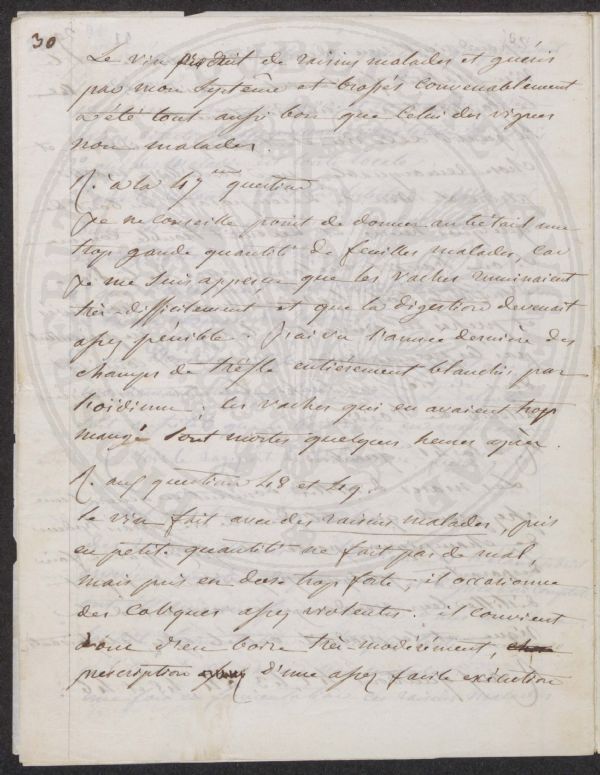 30
Le vin produit de raisins malades et guéris
par mon système et brossés convenablement
a été tout aussi bon que celui des vignes
non malades.
R. à la 47me question.
Je ne conseille point de donner au bétail une
trop grande quantité de feuilles malades, car
je me suis apperçu que les vaches ruminaient
très-difficilement et que la digestion devenait
assez pénible. J'ai vu l'année dernière des
champs de trèfle entièrement blanchis par
l'oïdium; les vaches qui en avaient trop
mangé sont mortes quelques heures après.
R. aux questions 48 et 49.
Le vin fait avec des raisins malades, pris
en petite quantité ne fait pas de mal,
mais pris en dose trop forte, il occasionne
des coliques assez violentes. il convient
donc d'en boire très-modérément,
prescription d'une assez facile exécution